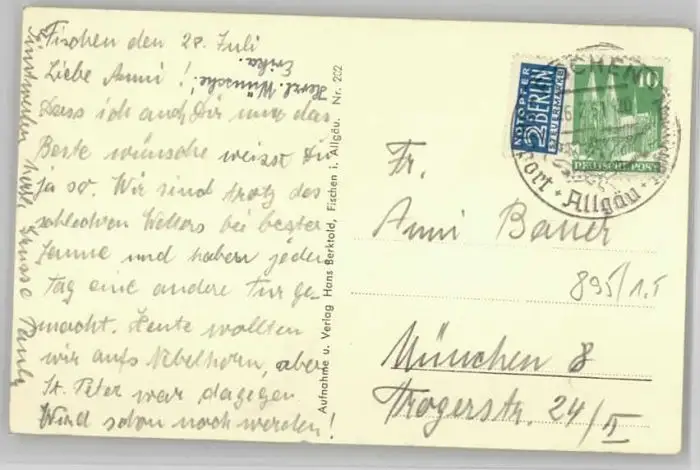 Fischen den 28. Juli
Liebe Anni!
Herzl. Wünsche!
Erika.
Dass ich auch Dir nur das
Beste wünsche weisst Du
ja so. Wir sind trotz des
schlechten Wetters bei bester
Laune und haben jeden
Tag eine andere Tur ge-
macht. Heute wollten
wir aufs Nebelhorn, aber
St. Peter war dagegen
Wird schon noch werden!
Grüsse
Aufnahme u. Verlag Hans Berktold, Fischen i. Allgäu. Nr. 202
NOTOPFER
2 BERLIN
STEUERMARKE
10
DEUTSCHE POST
FISCHEN
ort + Allgäu +
Fr.
Anni Bauer
895/1.5
München 8
Trogerstr. 24/II